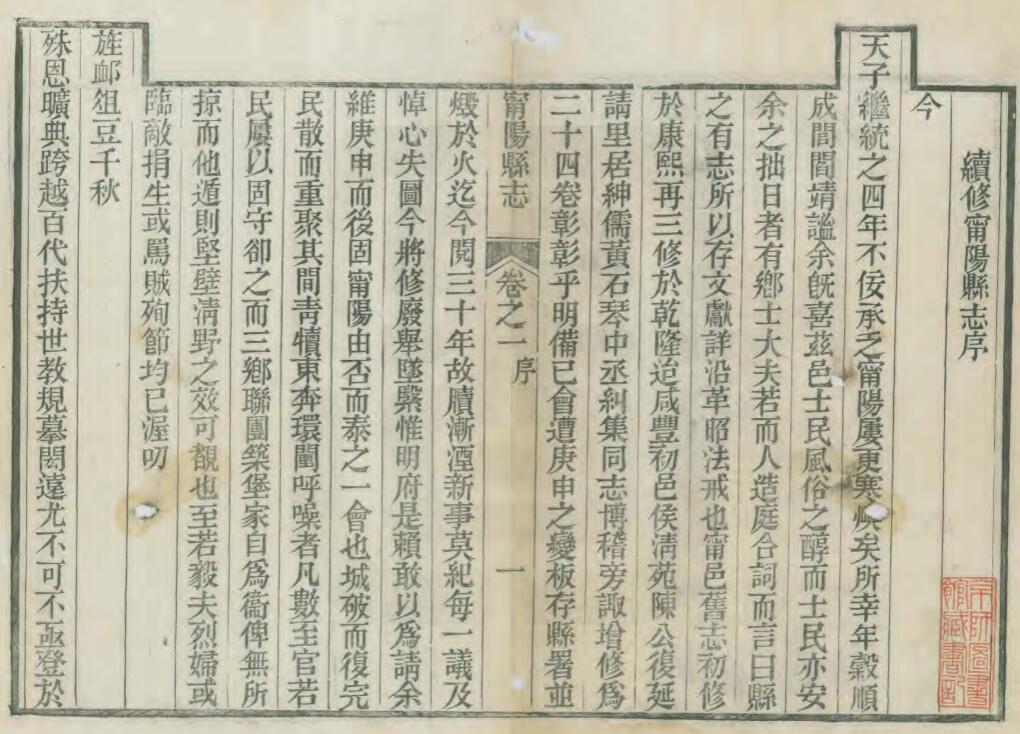 續修甯陽縣志序
今
天子繼統之四年不佞承乏甯陽屢更寒燠矣所幸年穀順
成閭閻靖謐余既喜茲邑士民風俗之醇而士民亦安
余之拙日者有鄉士大夫若而人造庭合詞而言曰縣
之有志所以存文獻詳沿革昭法戒也甯邑舊志初修
於康熙再三修於乾隆迨咸豐初邑侯淸苑陳公復延
請里居紳儒黃石琴中丞糾集同志博稽旁諏增修爲
二十四卷彰彰乎明備已會遭庚申之變板存縣署並
甯陽縣志
卷之一
序
一
燬於火迄今閱三十年故牘漸湮新事莫紀每一議及
悼心失圖今將修廢舉墜繄惟明府是賴敢以爲請余
維庚申而後固甯陽由否而泰之一會也城破而復完
民散而重聚其間靑犢東奔環闉呼噪者凡數至官若
民屢以固守卻之而三鄉聯團築堡家自爲衞俾無所
掠而他遁則堅壁淸野之效可覩也至若毅夫烈婦或
臨敵捐生或罵賊殉節均已渥叨
旌卹俎豆千秋
殊恩曠典跨越百代扶持世教規摹閎遠尤不可不亟登於
京師圖書
館藏書記